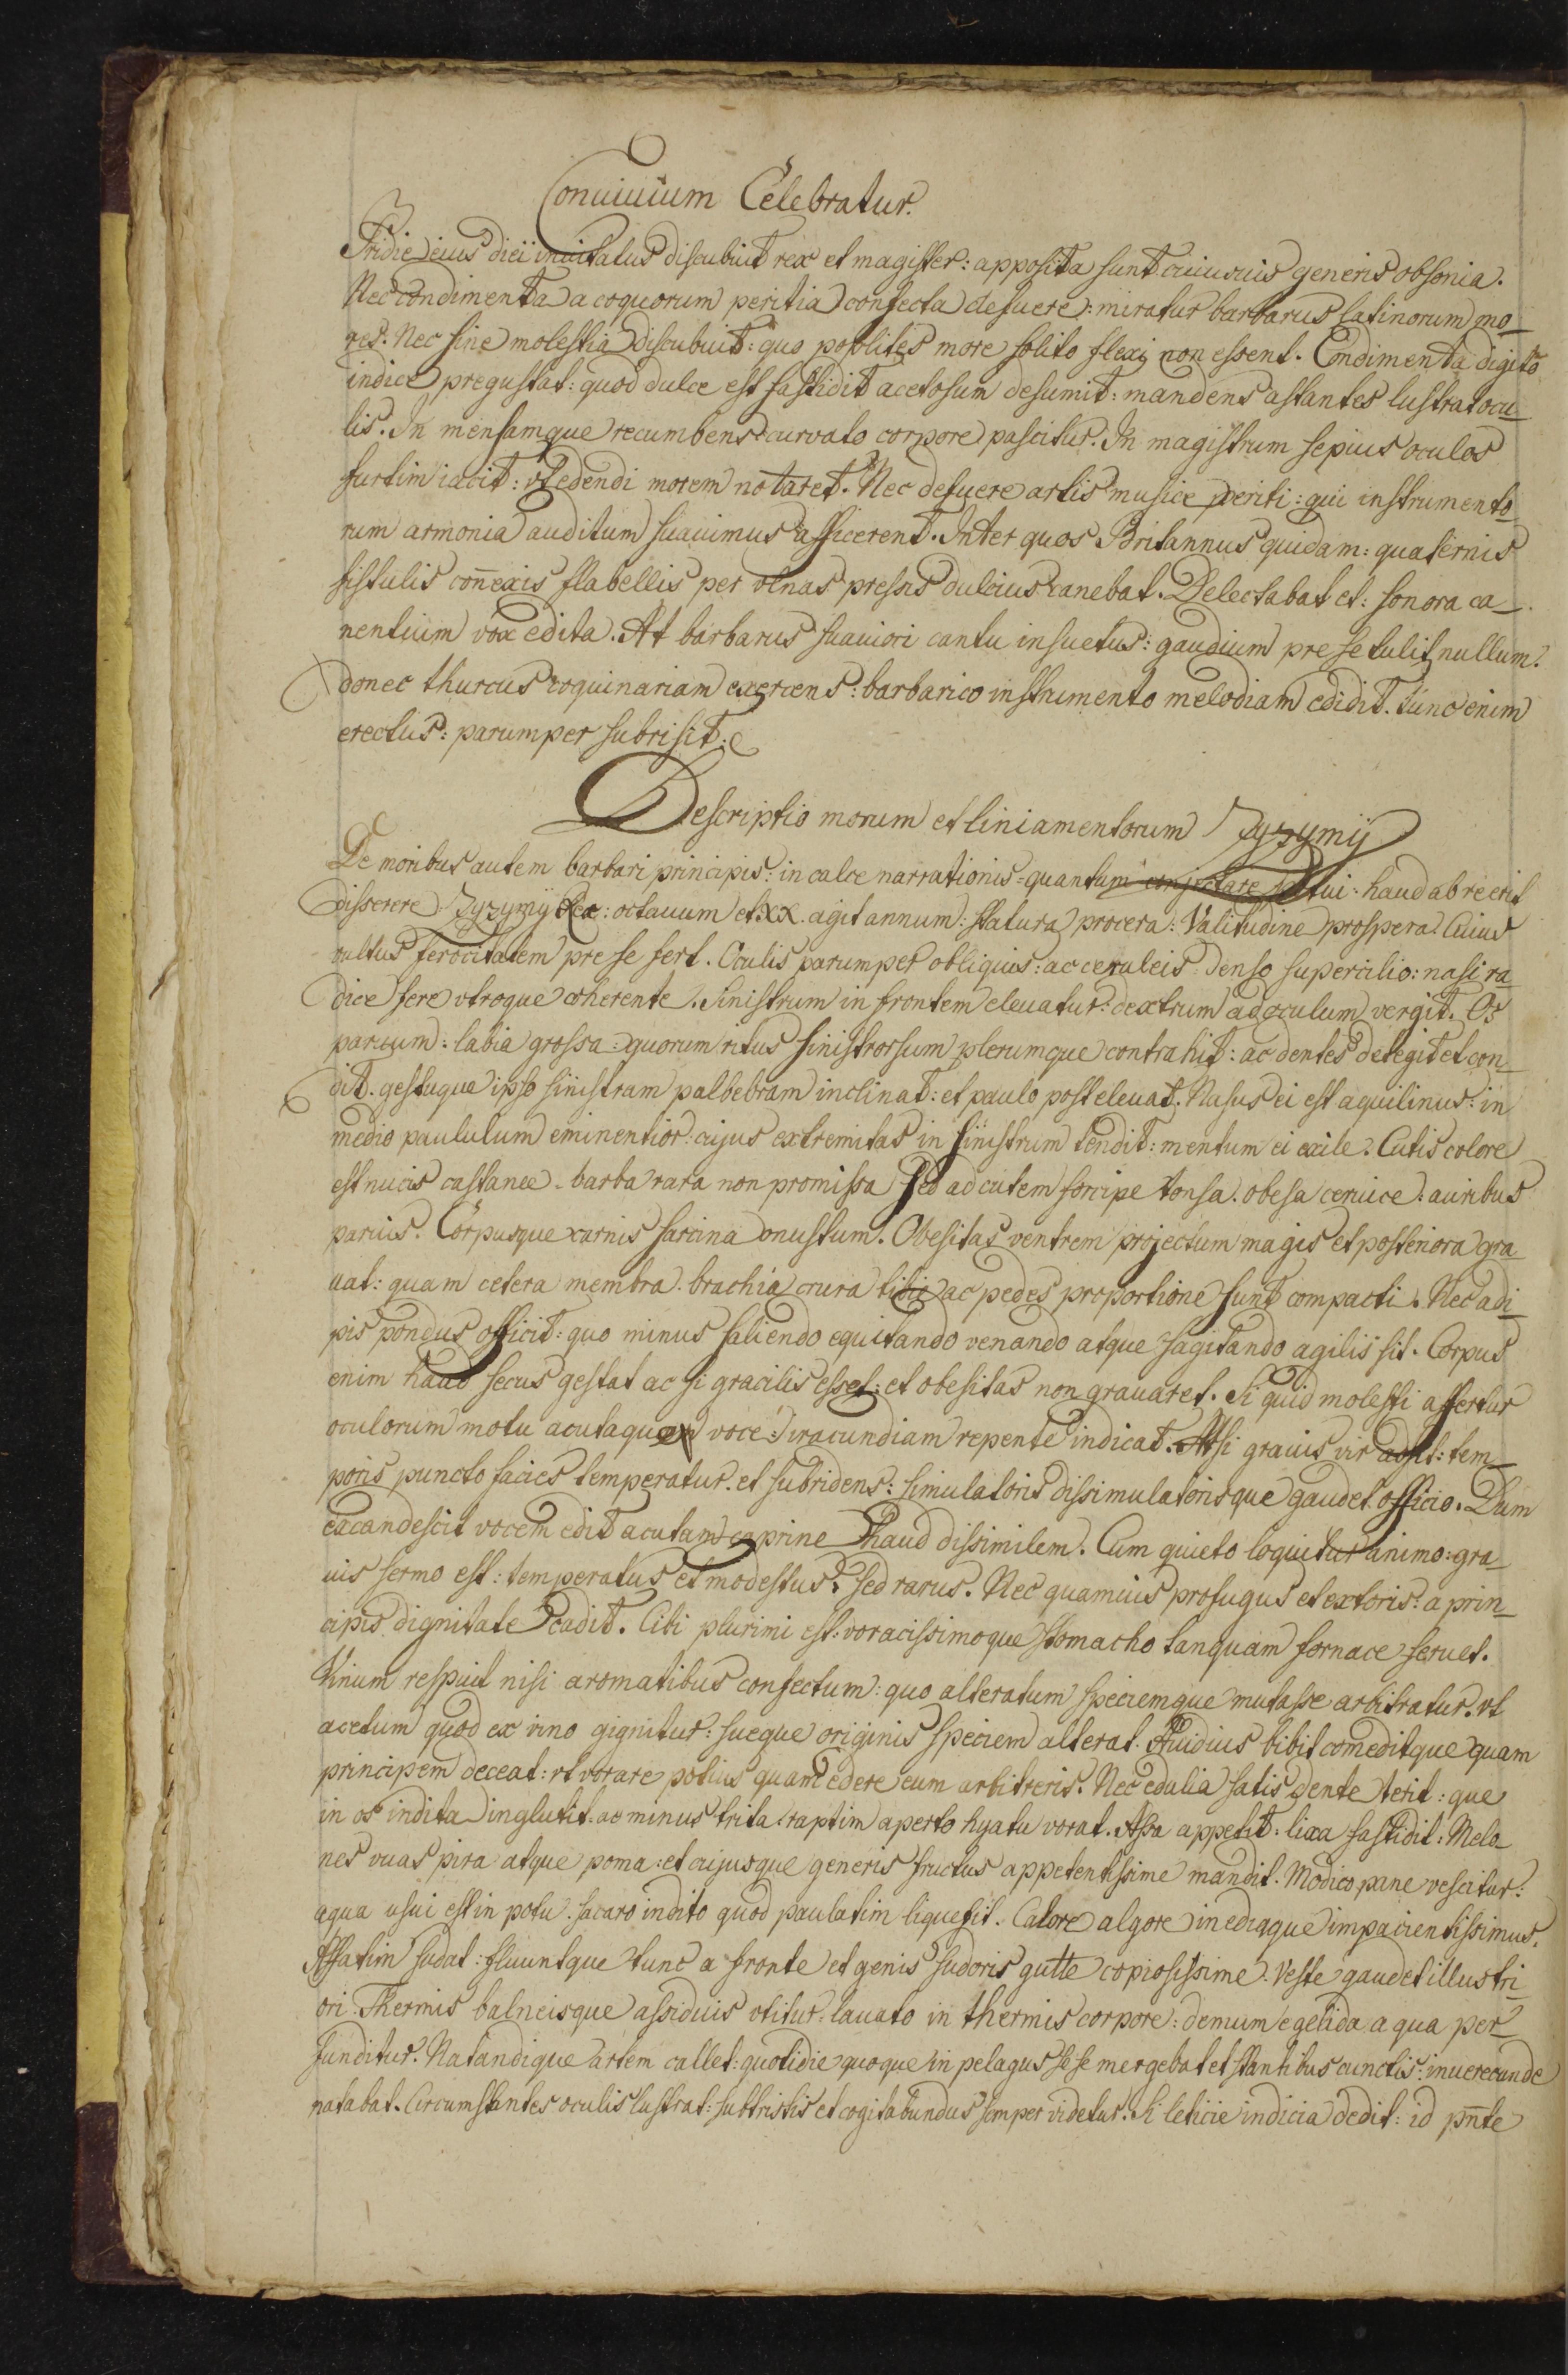 Conuiuium Celebratur.
Pridie eius diei inuitatus discubuit rex et magister: apposita sunt cuiusuis generis obsonia.
Nec condimenta a coquorum peritia confecta defuere: miratur barbarus latinorum mo_
res. Nec sine molestia discubuit: quo poplites more solito flexi non essent. Condimenta digito
indice pregustat: quod dulce est fastidit acetosum desumit: mandens astantes lustrat ocu_
lis. In mensamque recumbens curvato corpore pascitur. In magistrum sepius oculos
furtim iacit: vt edendi morem notaret. Nec defuere artis musice periti: qui instrumento_
rum armonia auditum suauimus afficerent. Inter quos Britannus quidam: quaternis
fistulis coñexis flabellis per vlnas pressis dulcius canebat. Delectabat et: sonora ca_
nentium vox edita. At barbarus suauiori cantu insuetus: gaudium pre se tulit nullum.
donec thurcus coquinariam exercens: barbarico instrumento melodiam edidit. tunc enim
erectus: parumper subrisit.
Descriptio morum et liniamentorum Zyzymij
De moribus autem barbari principis: in calce narrationis quantum conjectare potui: haud ab re erit
disserere. Zyzymÿ Rex: octauum et XX. agit annum: statura procera: Valitudine prospera. Cuius
vultus ferocitatem pre se fert. Oculis parumper obliquis: ac ceruleis denso supercilio: nasi ra_
dice fere vtroque coherente. Sinistrum in frontem eleuatur: dextrum ad oculum vergit. Os
paruum: labia grossa: quorum ritus sinistrorsum plerumque contrahit: ac dentes detegit et con_
dit. gestuque ipso sinistram palbebram inclinat: et paulo post eleuat. Nasus ei est aquilinus: in
medio paululum eminentior: cujus extremitas in sinistrum tendit: mentum ei exile. Cutis colore
est nucis castanee. barba rara non promissa sed ad cutem forcipe tonsa. obesa ceruice. auribus
paruis. Corpusque carnis sarcina onustum. Obesitas ventrem projectum magis et posteriora gra_
uat: quam cetera membra. brachia crura tibie ac pedes proportione sunt compacti. Nec adi_
pis pondus officit: quo minus saliendo equitando venando atque sagitando agilis sit. Corpus
enim haud secus gestat ac si gracilis esset: et obesitas non grauaret. Si quid molesti affertur
oculorum motu acutaque voce: iracundiam repente indicat. At si grauis vir adsit: tem_
poris puncto facies temperatur. et subridens: simulatoris dissimulatorisque gaudet officio. Dum
excandescit vocem edit acutam caprine haud dissimilem. Cum quieto loquitur animo: gra_
uis sermo est: temperatus et modestus: sed rarus. Nec quamuis profugus et extoris: a prin_
cipis dignitate cadit. Cibi plurimi est: voracissimoque stomacho tanquam fornace feruet.
Vinum respuit nisi aromatibus confectum: quo alteratum speciemque mutasse arbitratur. vt
acetum quod ex vino gignitur: sueque originis speciem alterat. Auidius bibit comeditque quam
principem deceat: vt vorare potius quam edere eum arbitreris. Nec edulia satis dente terit: que
in os indita inglutit. ac minus trita raptim aperto hyatu vorat. Assa appetit: lixa fastidit: Melo
nes vuas pira atque poma: et cujusque generis fructus appetentissime mandit. Modico pane vescitur:
aqua usui est in potu. sacaro indito quod paulatim liquefit. Calore algore inediaque impacientissimus.
Affatim sudat: fluuntque tunc a fronte et genis sudoris gutte copiosissime. Veste gaudet illustri_
ori. Thermis balneisque assiduis vtitur: lauato in thermis corpore: demum egelida aqua per_
funditur. Natandique artem callet: quotidie quoque in pelagus sese mergebat et stantibus cunctis: inuerecunde
natabat. Circumstantes oculis lustrat: subtristis et cogitabundus semper videtur. Si leticie indicia dedit: id pñte